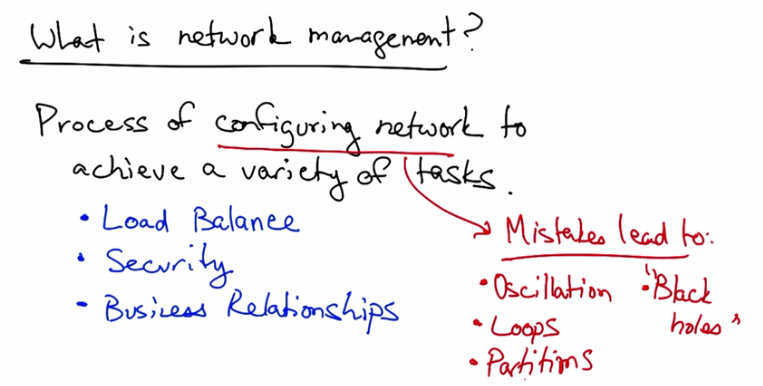 What is network management?
Process of configuring network to
achieve a variety of tasks.
• Load Balance
• Security
• Business Relationships
Mistakes lead to:
• Oscillation
• Loops
• Partitions
• "Black
holes"